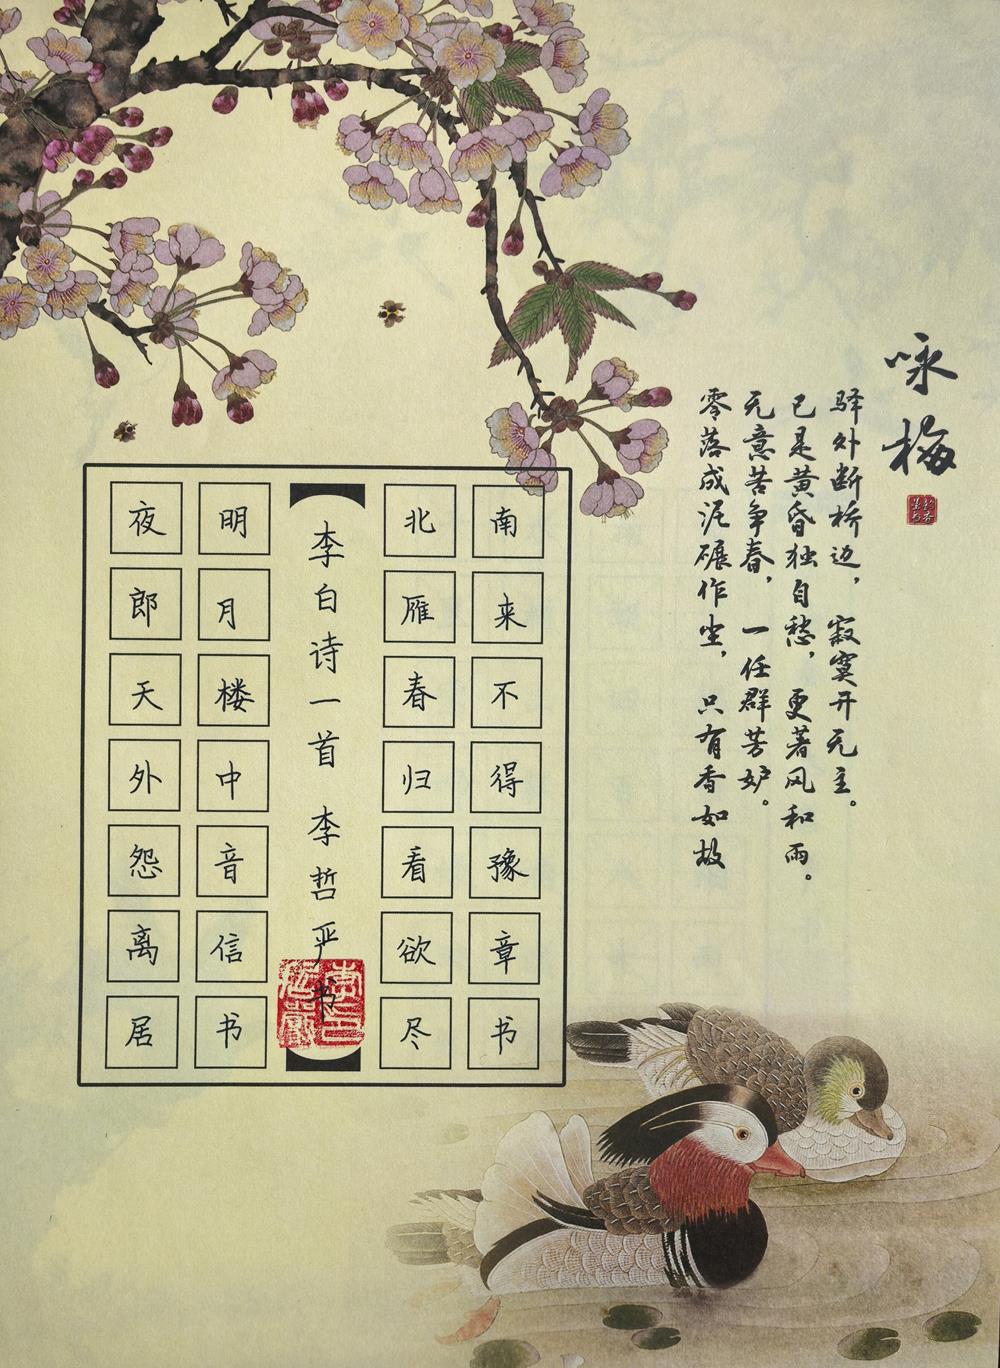 咏梅
驿外断桥边，寂寞开无主。
已是黄昏独自愁，更著风和雨。
无意苦争春，一任群芳妒。
零落成泥碾作尘，只有香如故
夜郎天外怨离居
明月楼中音信书
李白诗一首 李哲严书
北雁春归看欲尽
南来不得豫章书